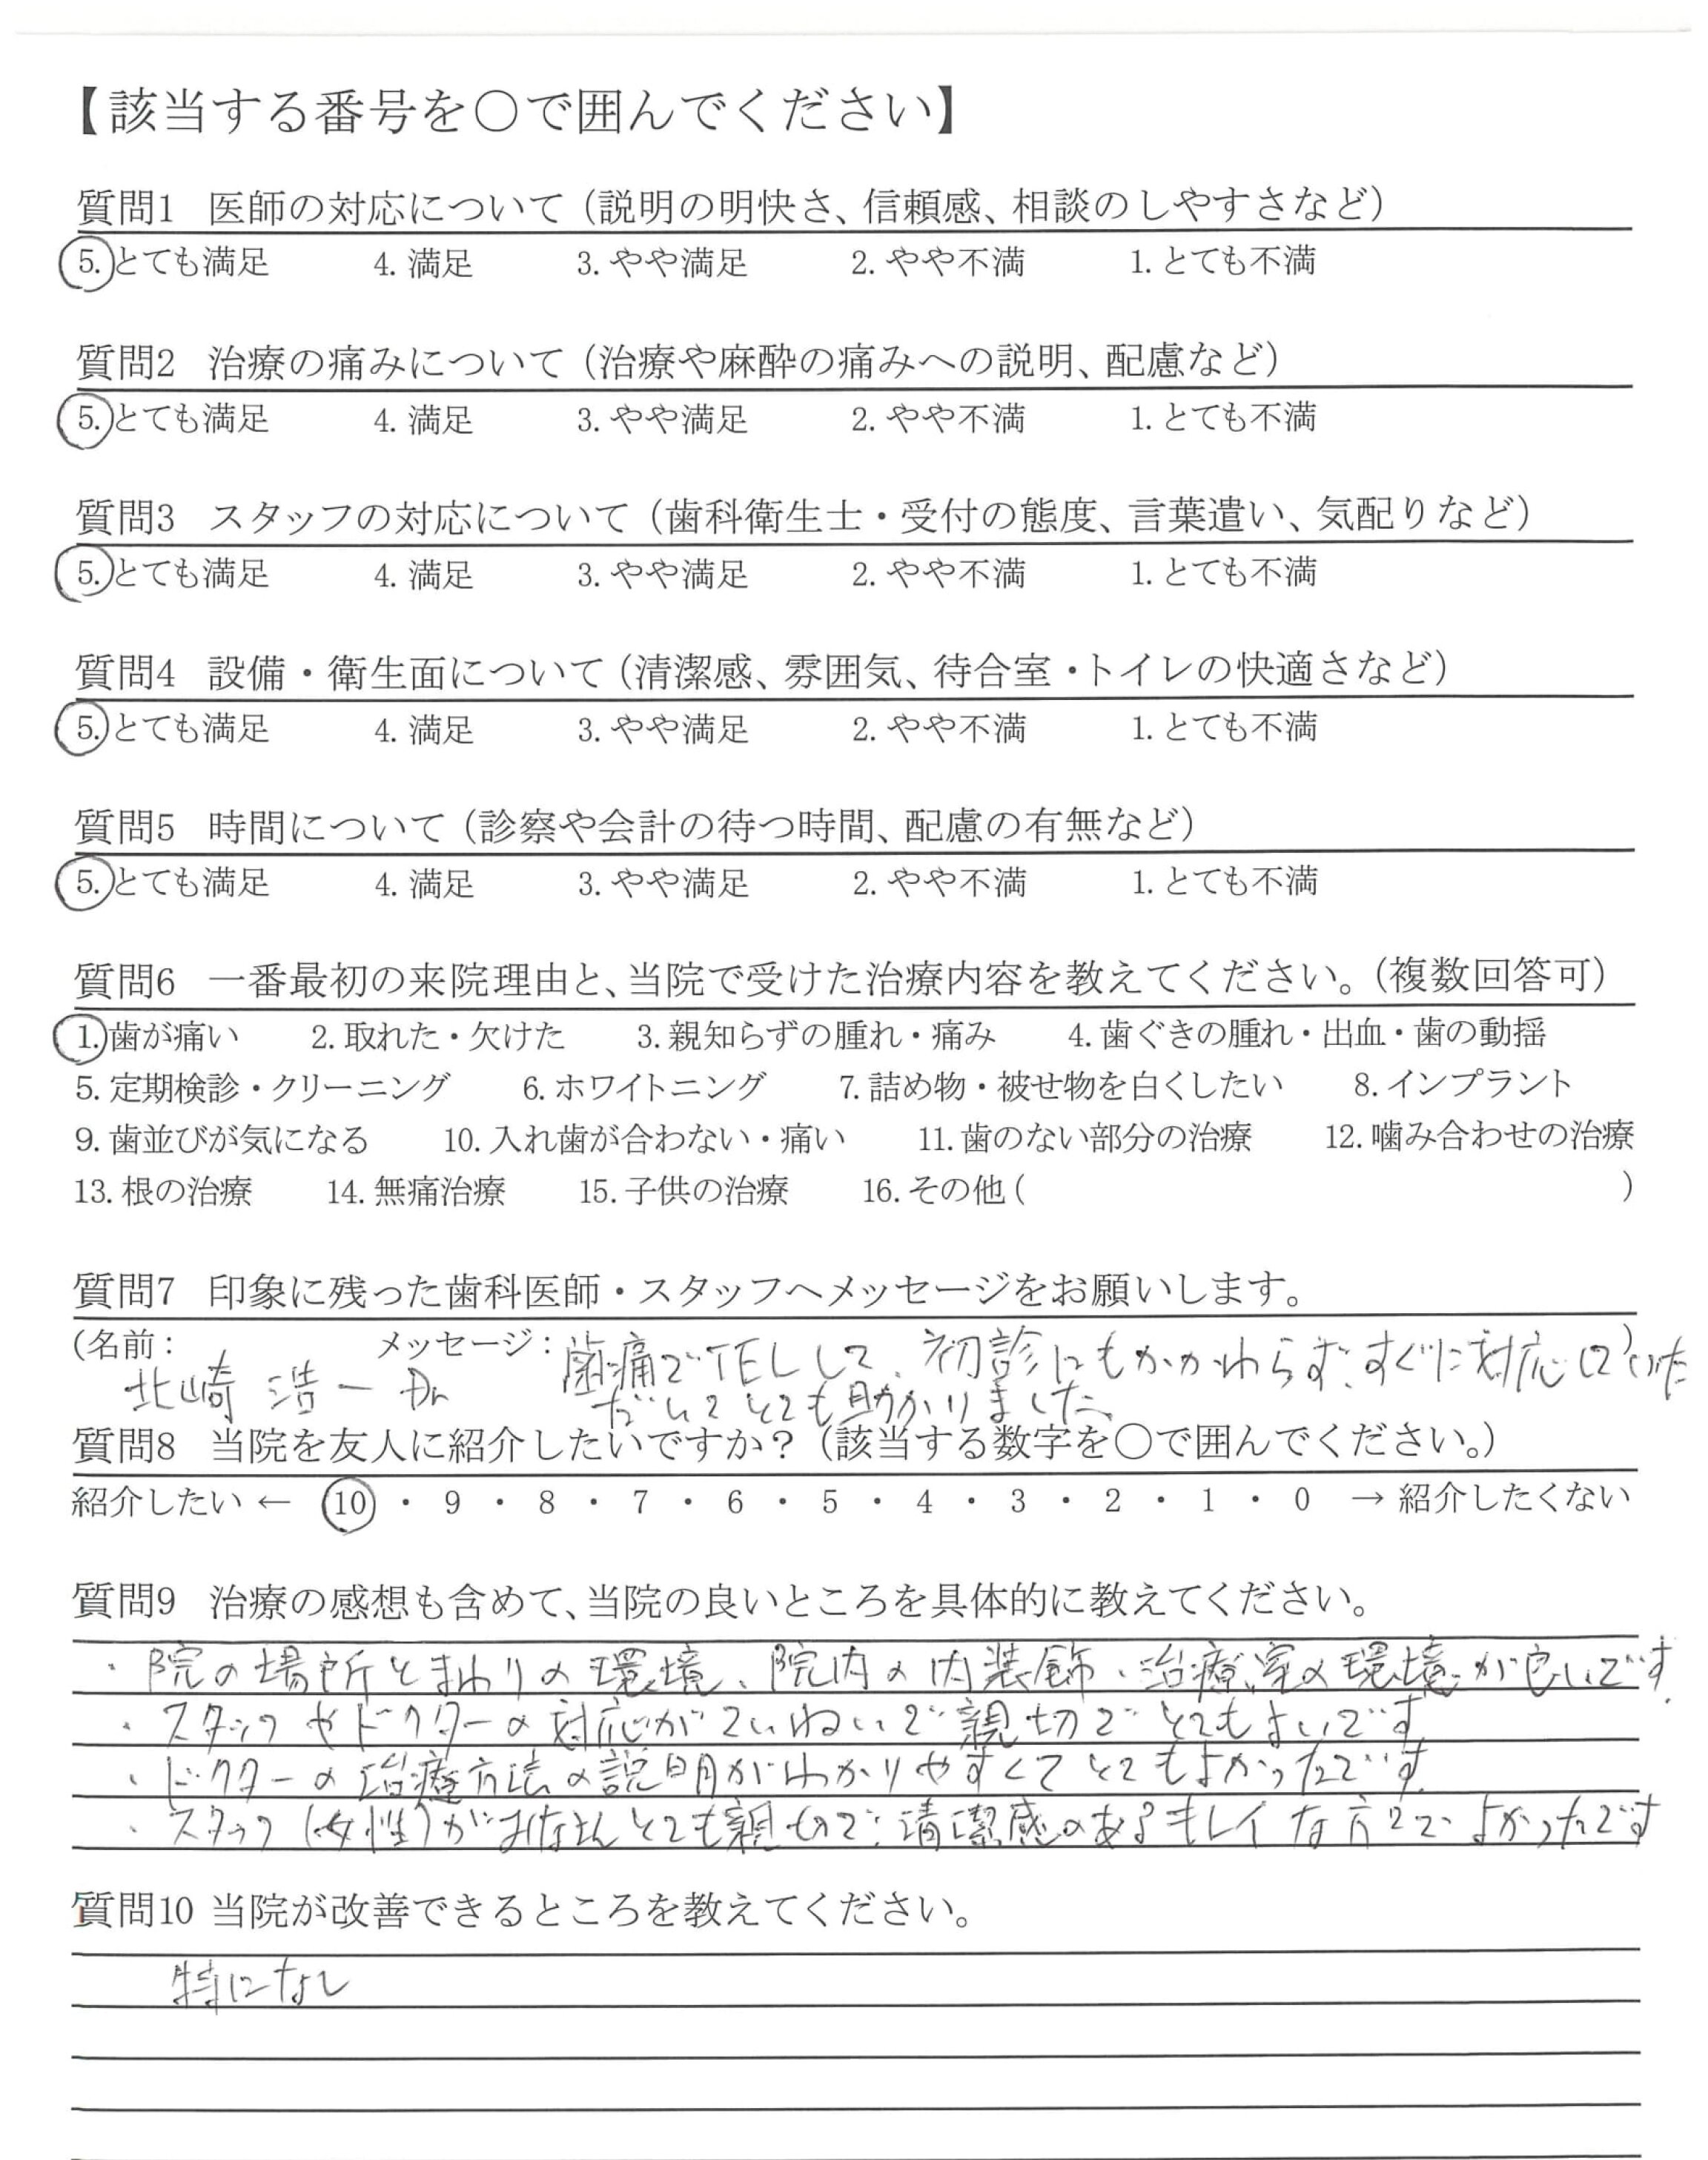 【該当する番号を○で囲んでください】
質問1 医師の対応について（説明の明快さ、信頼感、相談のしやすさなど）
5.とても満足 4.満足 3.やや満足 2.やや不満 1.とても不満
質問2 治療の痛みについて（治療や麻酔の痛みへの説明、配慮など）
5.とても満足 4.満足 3.やや満足 2.やや不満 1.とても不満
質問3 スタッフの対応について（歯科衛生士・受付の態度、言葉遣い、気配りなど）
5.とても満足 4.満足 3.やや満足 2.やや不満 1.とても不満
質問4 設備・衛生面について（清潔感、雰囲気、待合室・トイレの快適さなど）
5.とても満足 4.満足 3.やや満足 2.やや不満 1.とても不満
質問5 時間について（診察や会計の待つ時間、配慮の有無など）
5.とても満足 4.満足 3.やや満足 2.やや不満 1.とても不満
質問6 一番最初の来院理由と、当院で受けた治療内容を教えてください。（複数回答可）
1.歯が痛い 2.取れた・欠けた 3.親知らずの腫れ・痛み 4.歯ぐきの腫れ・出血・歯の動揺
5.定期検診・クリーニング 6.ホワイトニング 7.詰め物・被せ物を白くしたい 8.インプラント
9.歯並びが気になる 10.入れ歯が合わない・痛い 11.歯のない部分の治療 12.噛み合わせの治療
13.根の治療 14.無痛治療 15.子供の治療 16.その他（ ）
質問7 印象に残った歯科医師・スタッフへメッセージをお願いします。
（名前： メッセージ： ）
北崎 浩一 Dr 歯痛でTELして、初診にもかかわらず、すぐに対応していた
だいてとても助かりました
質問8 当院を友人に紹介したいですか？（該当する数字を○で囲んでください。）
紹介したい ← 10 ・ 9 ・ 8 ・ 7 ・ 6 ・ 5 ・ 4 ・ 3 ・ 2 ・ 1 ・ 0 → 紹介したくない
質問9 治療の感想も含めて、当院の良いところを具体的に教えてください。
・院の場所とまわりの環境、院内の内装飾、治療室の環境が良いです。
・スタッフやドクターの対応がていねいで親切でとてもよいです
・ドクターの治療方法の説明がわかりやすくてとてもよかったです。
・スタッフ（女性）がみなさんとても親切で清潔感のあるキレイな方々でよかったです
質問10 当院が改善できるところを教えてください。
特になし